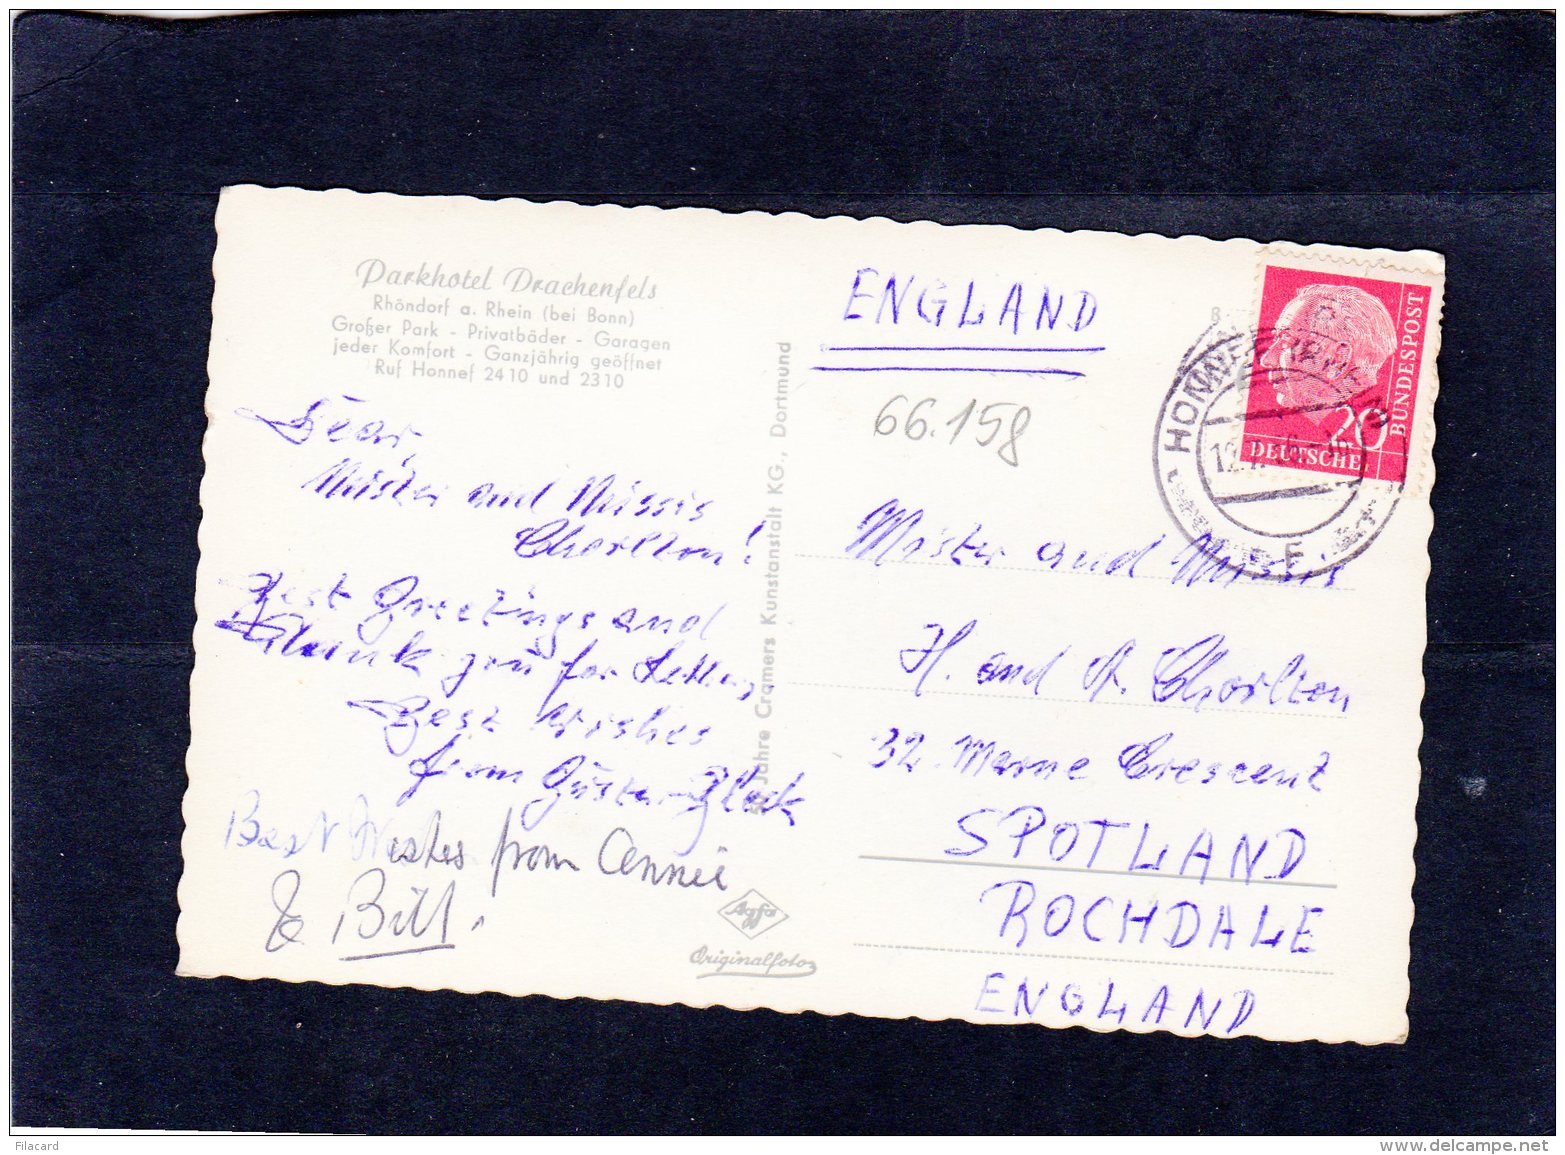 Parkhotel Drachenfels
Rhöndorf a. Rhein (bei Bonn)
Großer Park - Privatbäder - Garagen
jeder Komfort - Ganzjährig geöffnet
Ruf Honnef 2410 und 2310
Dear,
Mister and Missis
Chorlton!
Best Greetings and
Thank you for
Best Wishes
from Gustav
Best Wishes from Annie
& Bill.
Jahre Cramers Kunstanstalt KG., Dortmund
Agfa
Originalfoto
ENGLAND
66.158
20
DEUTSCHE
BUNDESPOST
HONNEF
Mister and Missis
H. and A. Chorlton
32. Marne Crescent
SPOTLAND
ROCHDALE
ENGLAND
Filacard
www.delcampe.net